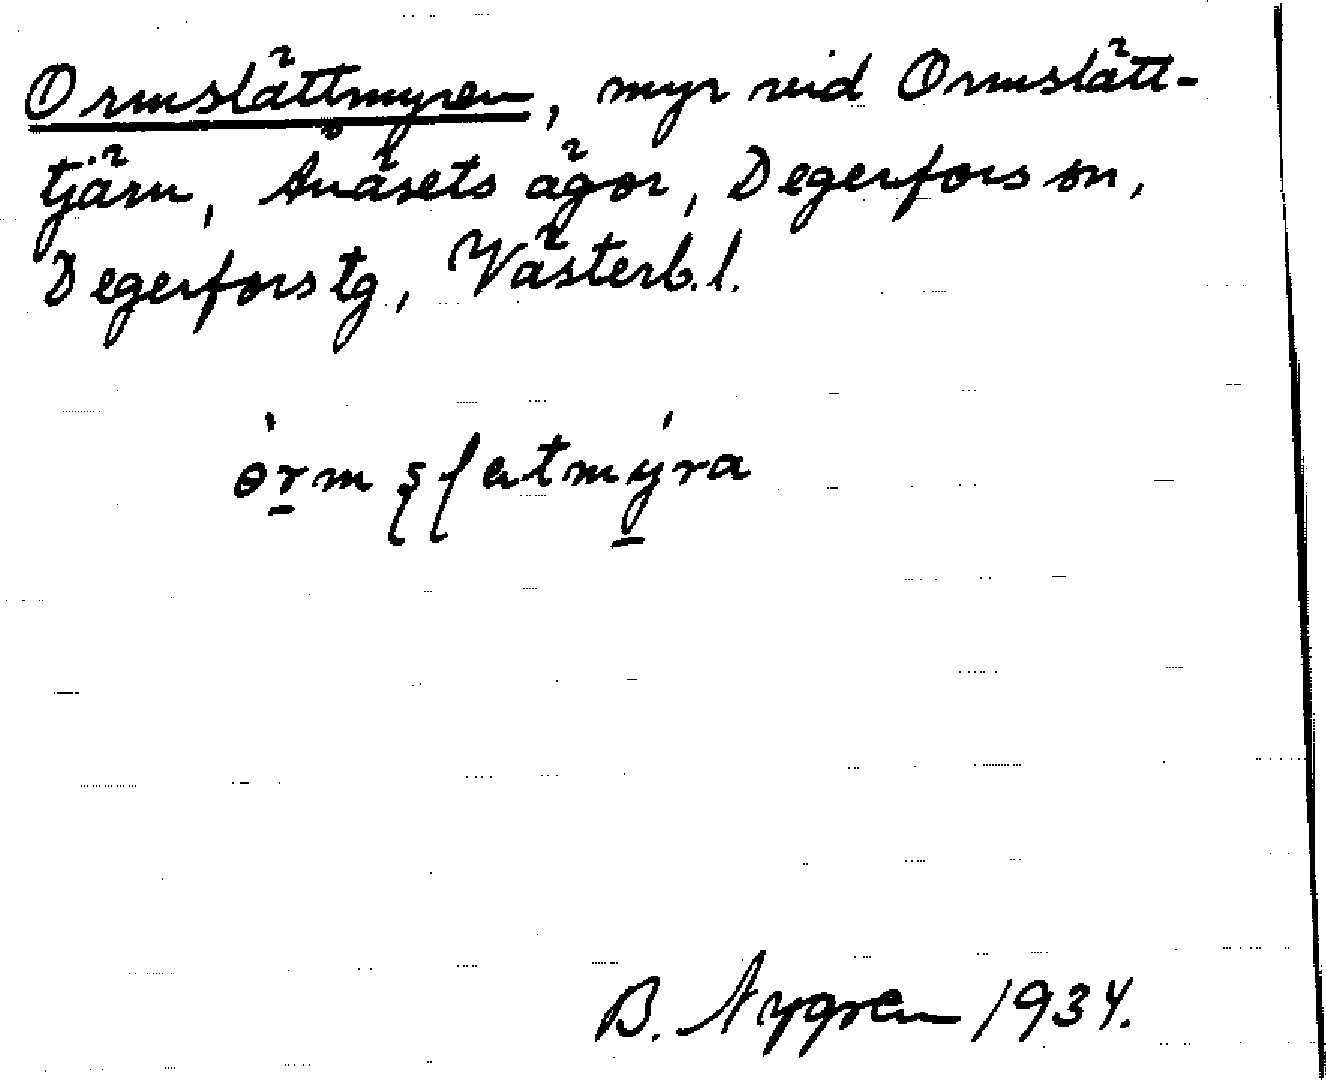 Ormslättmyren, myr vid Ormslätt-
tjärn, Ånäsets ägor, Degerfors sn,
Degerfors tg, Västerb. l.
B. Nygren 1934.